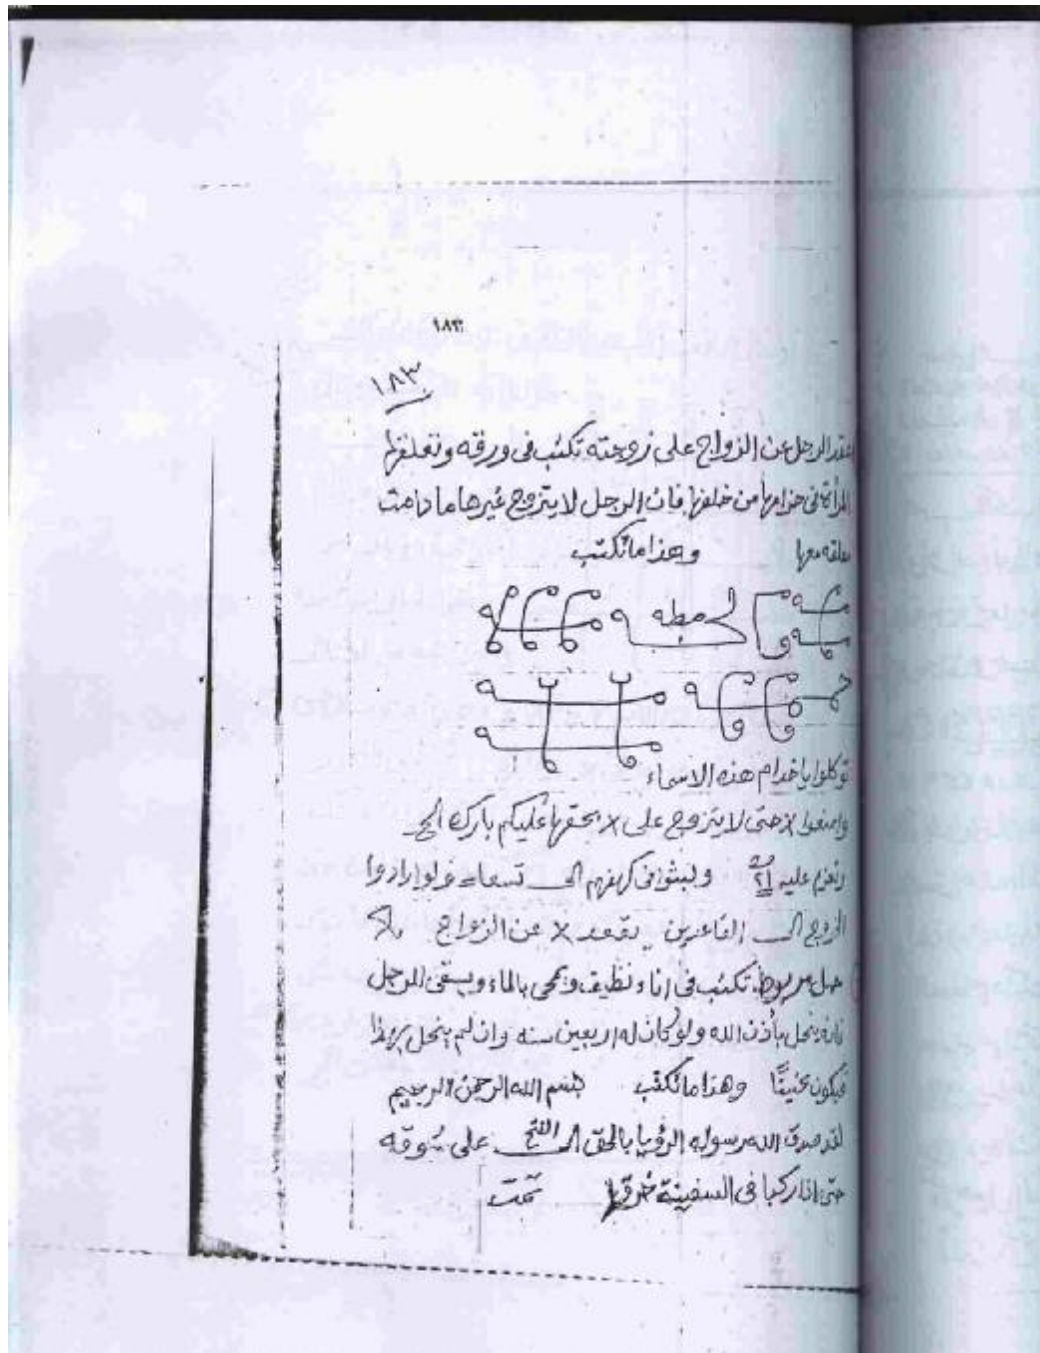 ١٨٣
١٨٣
عقد الرجل عن الزواج على زوجته تكتب فى ورقه وتعلقها
المرأة فى حزامها من خلفها فان الرجل لا يتزوج غيرها ما دامت
معلقه معها وهذا ما تكتب
توكلوا ياخدام هذه الاسماء
وامنعوا × حتى لا يتزوج على × بحقها عليكم بارك الخ
وتعزم عليه ٢١ ولبثوا فى كهفهم الى تسعا ولو ارادوا
الخروج الى القاعدين يقعد × عن الزواج
حل مربوط تكتب فى اناء نظيف وتمحى بالماء ويسقى للرجل
فانه ينحل بأذن الله ولو كان له اربعين سنه وان لم ينحل بهذا
فيكون عنينًا وهذا ما تكتب بسم الله الرحمن الرحيم
لقد صدق الله رسوله الرؤيا بالحق الى على سوقه
حتى اذا ركبا فى السفينة خرقها تمت